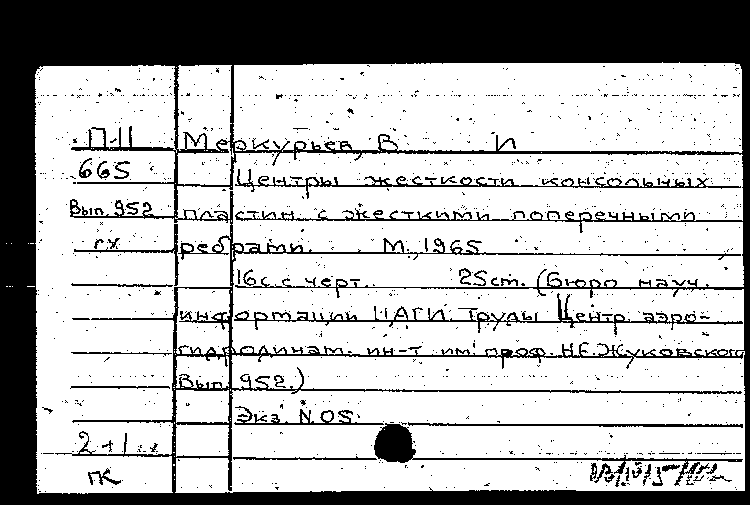 П-11 Меркурьев, В И
665 Центры жесткости консольных
Вып. 952 пластин с жесткими поперечными
гх ребрами. М., 1965
16с. с черт. 25 cm. (Бюро науч.
информации ЦАГИ. Труды Центр. аэро-
гидродинам. ин-т им. проф. Н.Е. Жуковского
Вып. 952.)
Экз. N 05.
2+1
ГК